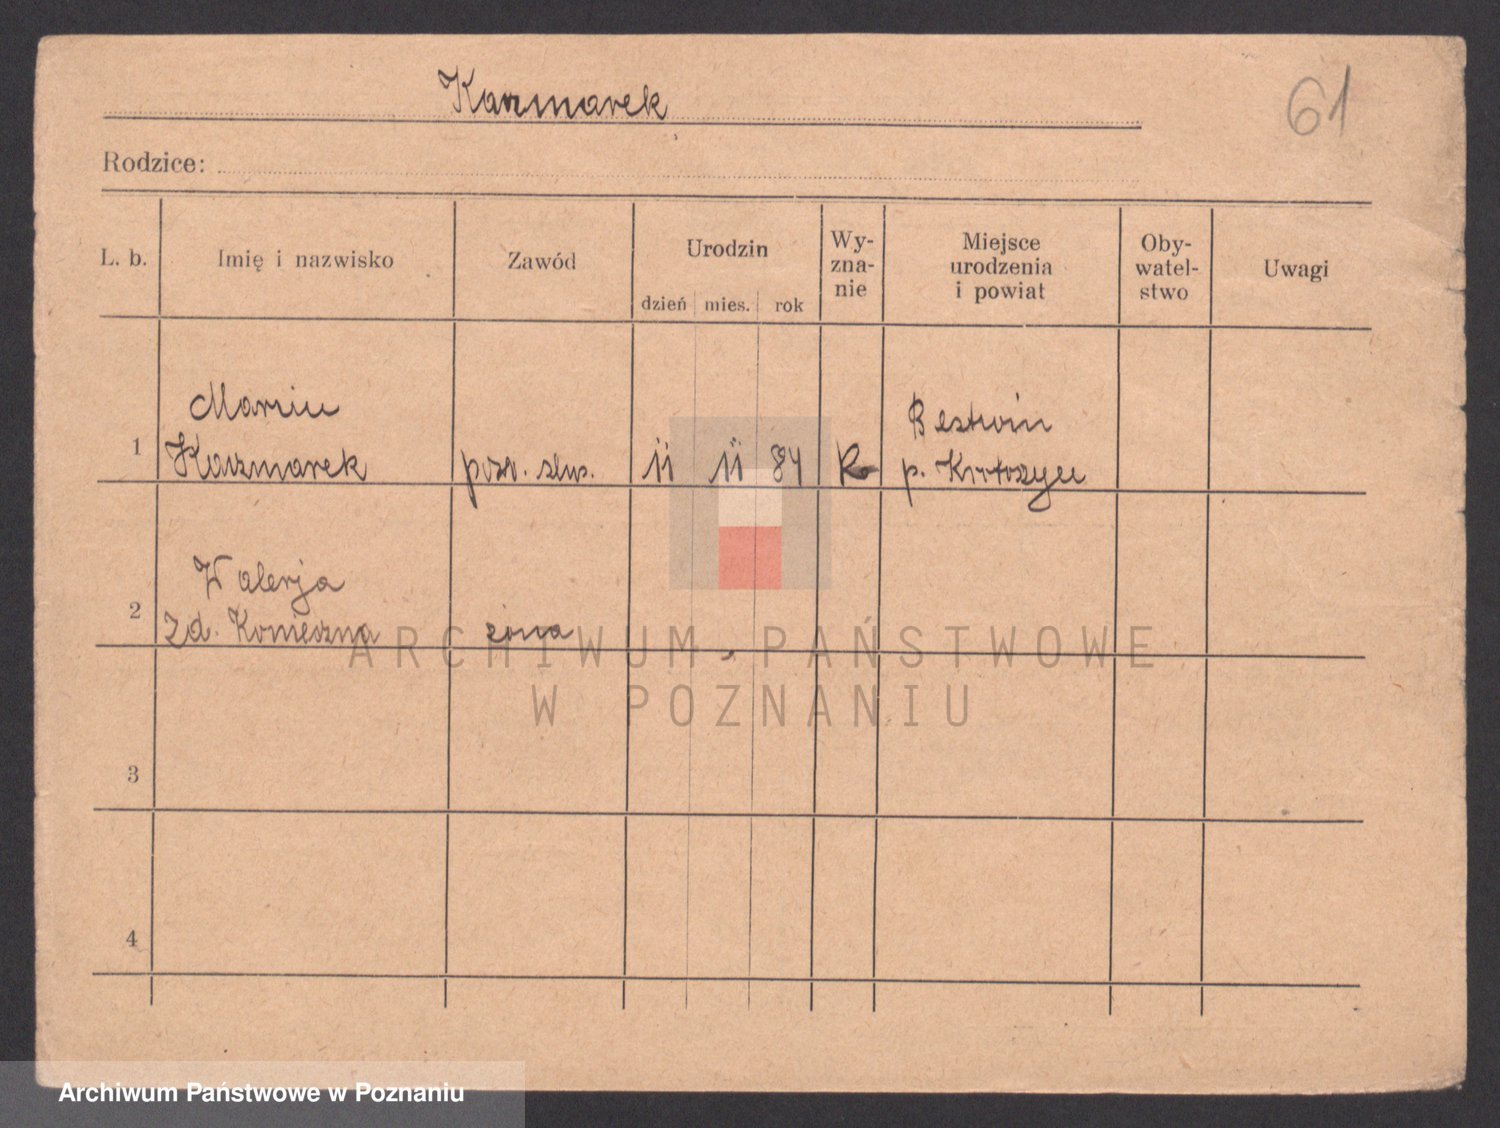 Kazmarek
61
Rodzice:
L. b.
Imię i nazwisko
Zawód
Urodzin
dzień mies. rok
Wy-
zna-
nie
Miejsce
urodzenia
i powiat
Oby-
watel-
stwo
Uwagi
Marcin
1 Kazmarek
11 11 84
Bestwin
p. Krotoszyn
Walerja
2 zd. Konieczna żona
3
4
ARCHIWUM PAŃSTWOWE
W POZNANIU
Archiwum Państwowe w Poznaniu